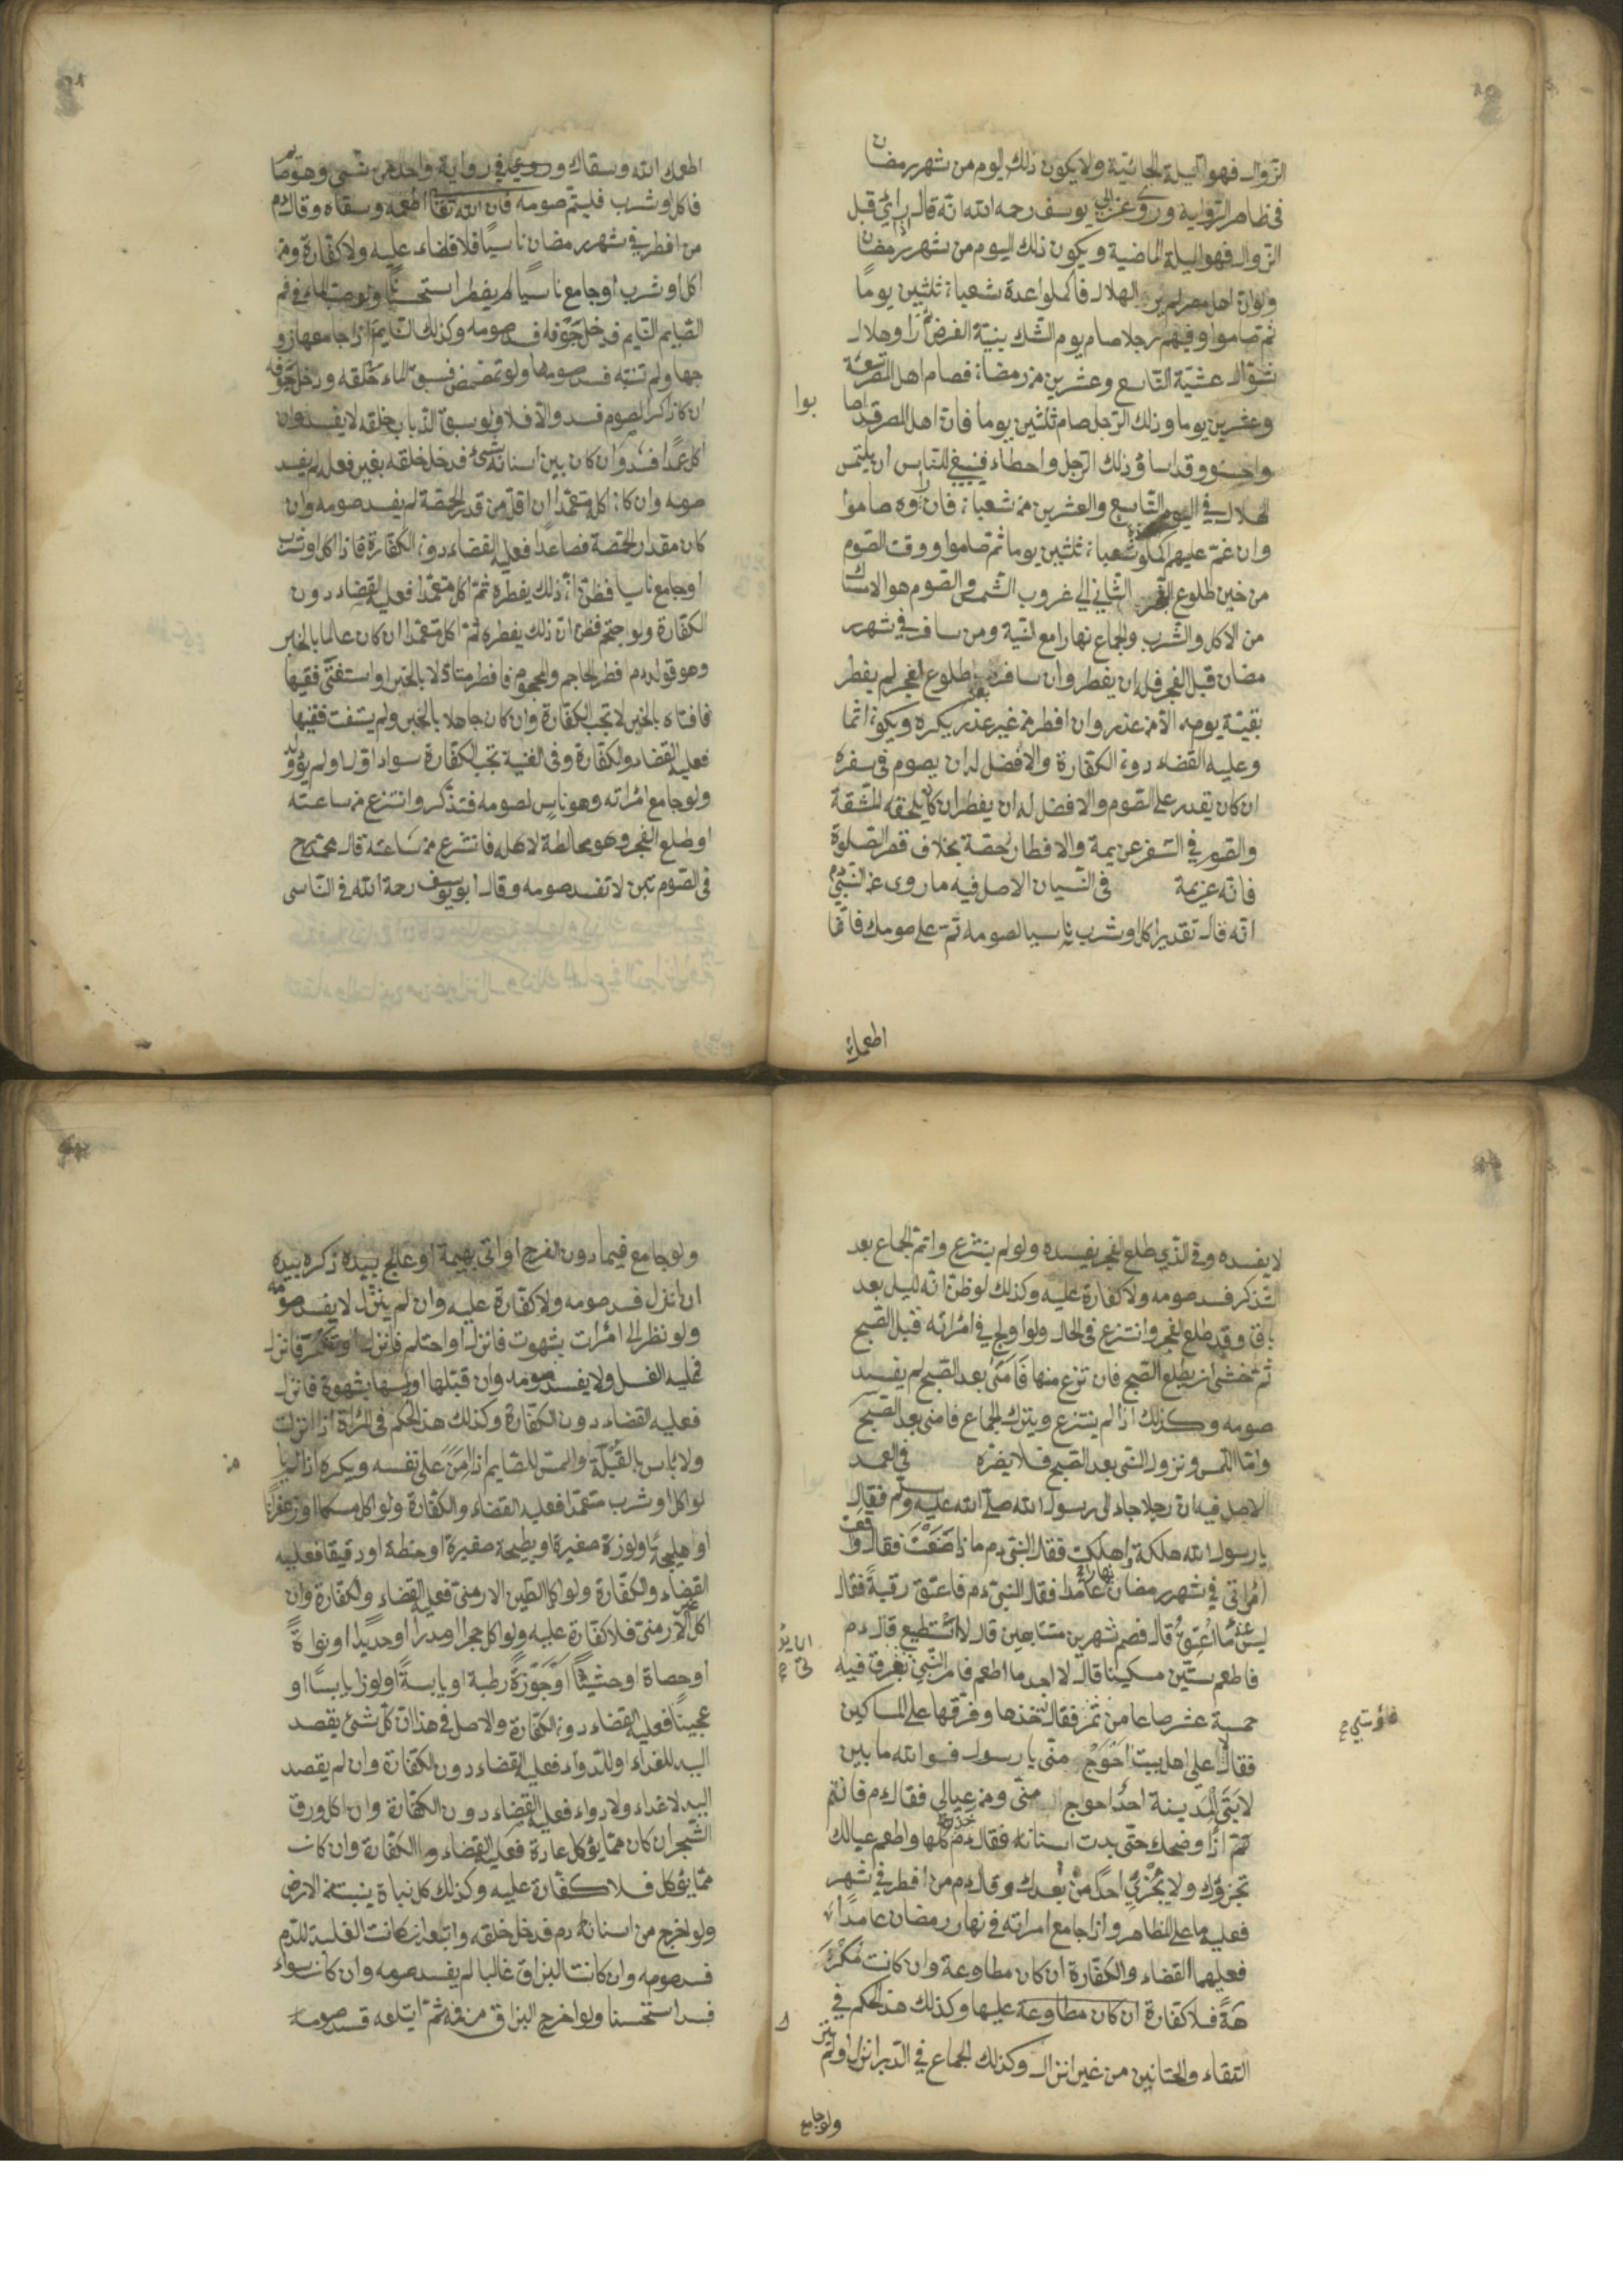 الزوال فهو لليلة الجائية ولا يكون ذلك اليوم من شهر رمضان
فى ظاهر الرواية وروى عن ابى يوسف رحمه الله انه قال اذا رائ قبل
الزوال فهو لليلة الماضية ويكون ذلك اليوم من شهر رمضان
ولو ان اهل مصر لم ير الهلال فاكملوا عدة شعبان ثلثين يوما
ثم صاموا وفيهم رجلا صام يوم الشك بنية الفرض راوهلال
شوال عشية التاسع وعشرين من رمضان فصام اهل المصر تسعة
وعشرين يوما وذلك الرجل صام ثلثين يوما فان اهل المصر قد اصا
بوا
واحسنوا وقد اساؤ ذلك الرجل واخطاء فينبغى للناس ان يلتمس
الهلال فى اليوم التاسع والعشرين من شعبان فان راوه صاموا
وان غم عليهم اكملو شعبان ثلثين يوما ثم صاموا ووقت الصوم
من حين طلوع الفجر الثانى الى غروب الشمس والصوم هو الامساك
من الاكل والشرب والجماع نهارا مع النية ومن سافر فى شهر
مضان قبل الفجر فله ان يفطر وان سافر بعد طلوع الفجر لم يفطر
بقيّة يومه الا من عذر وان افطر من غير عذر يكره ويكون اثما
وعليه القضاء دون الكفارة والافضل له ان يصوم فى سفره
ان كان يقدر على الصوم والافضل له ان يفطر ان كان يلحقه المشقة
والصوم فى السفر عزيمة والافطار رخصة بخلاف قصر الصلوة
فانه عزيمة فى النسيان الاصل فيه ما روى عن النبى دم
انه قال تقدير اكل وشرب ناسيا لصومه تم على صومك فانما
اطعمك
اطعمك الله وسقاك وروى فى رواية واحدة من نسى وهو صايم
فاكل او شرب فليتم صومه فان الله تعا اطعمه وسقاه وقال دم
من افطر فى شهر رمضان ناسيًا فلا قضاء عليه ولا كفارة ومن
اكل او شرب او جامع ناسيًا لم يفطر استحسانًا ولو صب الماء فى فم
الصايم النايم فدخل جوفه فسد صومه وكذلك النايمة اذا جامعها زو
جها ولم تنتبه فسد صومها ولو تمضمض فسبق الماء حلقه ودخل جوفه
ان كان ذاكرا لصوم فسد والا فلا ولو سبق الذباب حلقه لا يفسد وان
اكل عمدًا فسد وان كان بين اسنانه شئ فدخل حلقه بغير فعله لم يفسد
صومه وان كان اكله متعمّدا ان اقل من قدر الحمصة لم يفسد صومه وان
كان مقدار الحمصة فصاعدًا فعليه القضاء دون الكفارة فاذا اكل او شرب
او جامع ناسيا فظن ان ذلك يفطره ثم اكل متعمّدا فعليه القضاء دون
الكفارة ولو احتجم فظن ان ذلك يفطره ثم اكل متعمّدا ان كان عالما بالخبر
وهو قوله دم افطر الحاجم والمحجوم فافطر متاولا بالخبر او استفتى فقيها
فافتاه بالخبر لا تجب الكفارة وان كان جاهلا بالخبر ولم يستفت فقيها
فعليه القضاء والكفارة وفى الغنية تجب الكفارة سواء اول او لم يؤول
ولو جامع امراته وهو ناس لصومه فتذكر وانتزع من ساعته
او طلع الفجر وهو مخالطة لاهله فانتزع من ساعته قال محمد رح
فى الصوم تين لا تفسد صومه وقال ابو يوسف رحمة الله فى الناسى
لا يفسده وفى الذى طلع الفجر يفسده ولو لم ينتزع واتم الجماع بعد
التذكر فسد صومه ولا كفارة عليه وكذلك لو ظن انه ليل بعد
باق وقد طلع الفجر وانتزع فى الحال ولو اولج فى امراته قبل الصبح
ثم خشى ان يطلع الصبح فان نزع منها فامنى بعد الصبح لم يفسد
صومه وكذلك اذا لم ينتزع ويترك الجماع فامنى بعد الصبح
وامّا اللمس ونزول الشى بعد الصبح فلا يضره فى العمد
الاصل فيه ان رجلا جاء الى رسول الله صلى الله عليه وسلم فقال
يا رسول الله هلكة واهلكت فقال النبى دم ماذا صنعت فقال واقعت
امراتى فى شهر رمضان نهارا عامدا فقال النبى دم فاعتق رقبة فقال
ليس عندى ما اعتق قال فصم شهرين متتابعين قال لا استطيع قال دم
فاطعم ستين مسكينا قال لا اجد ما اطعم فامر النبى بفرق فيه
خمسة عشر صاعا من تمر فقال خذها وفرقها على المساكين
فقال على اهل بيت احوج منى يا رسول فوالله ما بين
لابتى المدينة احدًا احوج منى ومن عيالى فقال دم فانتم
هم اذًا وضحك حتى بدت اسنانه فقال دم كلها واطعم عيالك
تجزؤك ولا يجزئ احدًا من بعدك وقال دم من افطر فى شهر
فعليه ما على المظاهر واذا جامع امراته فى نهار رمضان عامدًا
فعليهما القضاء والكفارة ان كان مطاوعة وان كانت مكر
هة فلا كفارة ان كان مطاوعة عليها وكذلك هذا الحكم فى
التقاء والختانين من غير انزال وكذلك الجماع فى الدبر انزل او لم ينزل
ولو جامع
ولو جامع فيما دون الفرج او اتى بهيمة او عالج بيده ذكره بيده
ان انزل فسد صومه ولا كفارة عليه وان لم ينزل لا يفسد صومه
ولو نظر الى امرات بشهوت فانزل او احتلم فانزل او تفكر فانزل
فعليه الغسل ولا يفسد صومه وان قبلها او لمسها بشهوة فانزل
فعليه القضاء دون الكفارة وكذلك هذا الحكم فى المراة اذا انزلت
ولا باس بالقبلة والمس للصايم اذا امن على نفسه ويكره اذا لم يا
من
لو اكل او شرب متعمّدا فعليه القضاء والكفارة ولو اكل مسكا او زعفرانا
او هليجة او لوزة صغيرة او بطيخة صغيرة او حنطة او دقيقا فعليه
القضاء والكفارة ولو اكل الطين الارمنى فعليه القضاء والكفارة وان
اكل غير الارمنى فلا كفارة عليه ولو اكل حجرا او مدرا او حديدا او نواة
او حصاة او حشيشًا او جوزة رطبة او يابسة او لوزا يابسًا او
عجينًا فعليه القضاء دون الكفارة والاصل فى هذا ان كل شئ يقصد
اليه للغداء او للدواء فعليه القضاء دون الكفارة وان لم يقصد
اليه لا غداء ولا دواء فعليه القضاء دون الكفارة وان اكل ورق
الشجر ان كان مما يؤكل عادة فعليه القضاء والكفارة وان كانت
مما يؤكل فلا كفارة عليه وكذلك كل نباة ينبت من الارض
ولو اخرج من اسنانه دم فدخل حلقه وابتلعه ان كانت الغلبة للدم
فسد صومه وان كانت البزاق غالبا لم يفسد صومه وان كانت سواء
فسد استحسنا ولو اخرج البزاق من فمه ثم ابتلعه فسد صومه